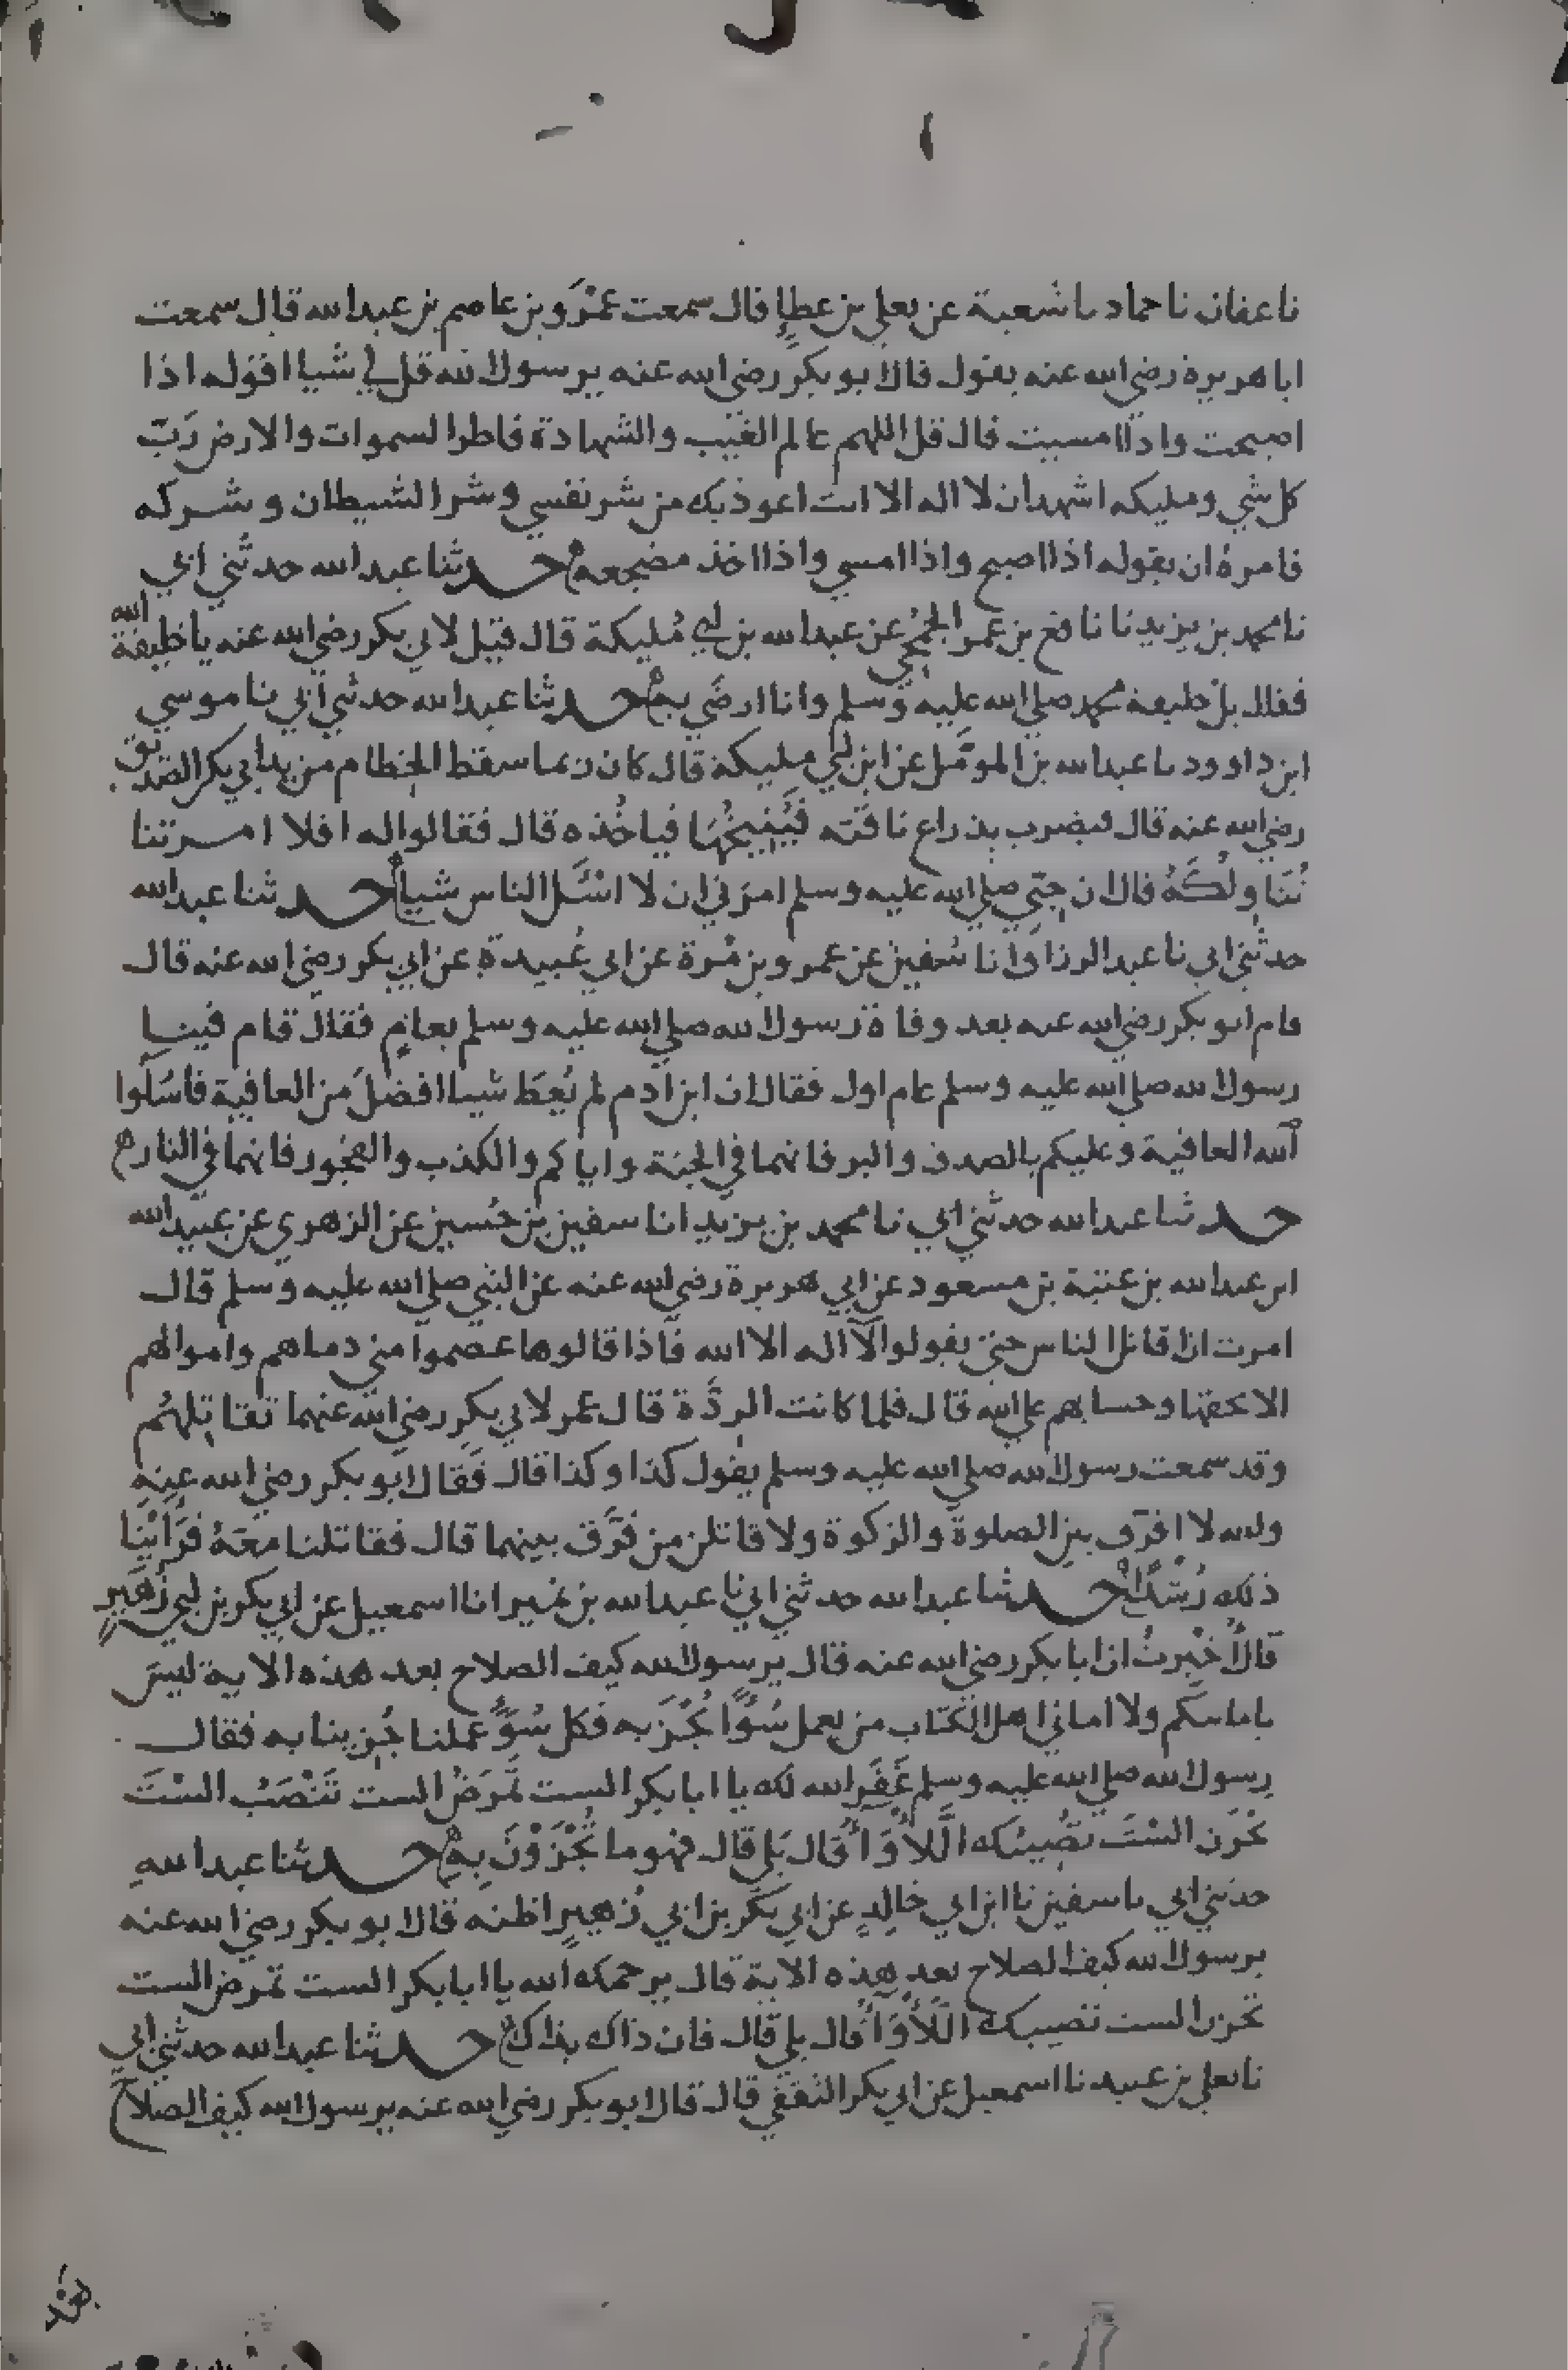 نا عفان نا حماد نا شعبة عن يعلي بن عطاءٍ قال سمعت عَمْرَو بن عاصم بن عبد الله قال سمعت
ابا هريرة رضي الله عنه يقول قال ابو بكر رضي الله عنه يرسول الله قل لي شيا اقوله اذا
اصبحت واذا امسيت قال قل اللهم عالم الغيب والشهادة فاطر السموات والارض رَبّ
كل شي ومليكه اشهد ان لا اله الا انت اعوذ بك من شر نفسي وشر الشيطان وشركه
فامره ان يقوله اذا اصبح واذا امسي واذا اخذ مضجعه ه حدثنا عبد الله حدثني ابي
نا محمد بن يزيد نا نافع بن عمر الجُمَحي عن عبد الله بن ابي مُليكة قال قيل لابي بكر رضي الله عنه يا خليفة الله
فقال بل خليفة محمد صلي الله عليه وسلم وانا ارضَي به ه حدثنا عبد الله حدثني ابي نا موسي
ابن داوود نا عبد الله بن المومَّل عن ابن ابي مليكة قال كان ربما سقط الخطام من يد ابي بكر الصديق
رضي الله عنه قال فيضرب بذراع ناقته فَيُنِيخُهَا فياخُذه قال فقالوا له افلا امرتنا
نُنَاوِلُكَهُ قال ان حِبّي صلي الله عليه وسلم امرني ان لا اسْئَل الناس شيا ه حدثنا عبد الله
حدثني ابي نا عبد الرزاق انا سُفين عن عمرو بن مُرة عن ابي عُبيدة عن ابي بكر رضي الله عنه قال
قام ابو بكر رضي الله عنه بعد وفاة رسول الله صلي الله عليه وسلم بعامٍ فقال قام فينا
رسول الله صلي الله عليه وسلم عام اول فقال ان ابن ادم لم يُعطَ شيا افضلَ من العافية فاسْلُوا
الله العافية وعليكم بالصدق والبر فانهما في الجنة واياكم والكذب والفجور فانهما في النار ه
حدثنا عبد الله حدثني ابي نا محمد بن يزيد انا سفين بن حُسين عن الزهري عن عبيد الله
ابن عبد الله بن عتبة بن مسعود عن ابي هريرة رضي الله عنه عن النبي صلي الله عليه وسلم قال
امرت ان اقاتل الناس حتي يقولوا لا اله الا الله فاذا قالوها عصموا مني دماهم واموالهم
الا بحقها وحسابهم علي الله قال فلما كانت الردَّة قال عمر لابي بكرٍ رضي الله عنهما تقاتِلهُم
وقد سمعت رسول الله صلي الله عليه وسلم يقول كذا وكذا قال فقال ابو بكر رضي الله عنه
والله لا افرق بين الصلوة والزكوة ولا قاتلن من فرَّق بينهما قال فقاتلنا معَهُ فرَاَيْنَا
ذلك رُشدًا ه حدثنا عبد الله حدثني ابي نا عبد الله بن نمير انا اسمعيل عن ابي بكر بن ابي زُهَيرٍ
قال اُخْبِرتُ ان ابا بكر رضي الله عنه قال يرسول الله كيف الصلاح بعد هذه الاية ليسَ
بامانيكم ولا اماني اهل الكتاب من يعمل سُوًا يُجْزَ به فكل سُوٍ عملنا جُزِينا به فقال
رسول الله صلي الله عليه وسلم غَفَرَ الله لك يا ابا بكر الست تَمرَضُ الست تَنْصَبُ الستَ
تَحْزَن الستَ تصِيبُك اللاْوَاُ قال بَلي قال فهو ما تُجْزَوْنَ بِهِ ه حدثنا عبد الله
حدثني ابي نا سفين نا ابن ابي خالدٍ عن ابي بَكر بن ابي زُهيرٍ اظنه قال ابو بكر رضي الله عنه
يرسول الله كيف الصلاح بعد هذه الاية قال يرحمك الله يا ابا بكر الست تمرض الست
تحزن الست تصيبك اللاْوَاُ قال بلي قال فان ذاك بذاك ه حدثنا عبد الله حدثني ابي
نا يعلي بن عبيد نا اسمعيل عن ابي بكر الثقفي قال قال ابو بكر رضي الله عنه يرسول الله كيف الصلاح
بعد